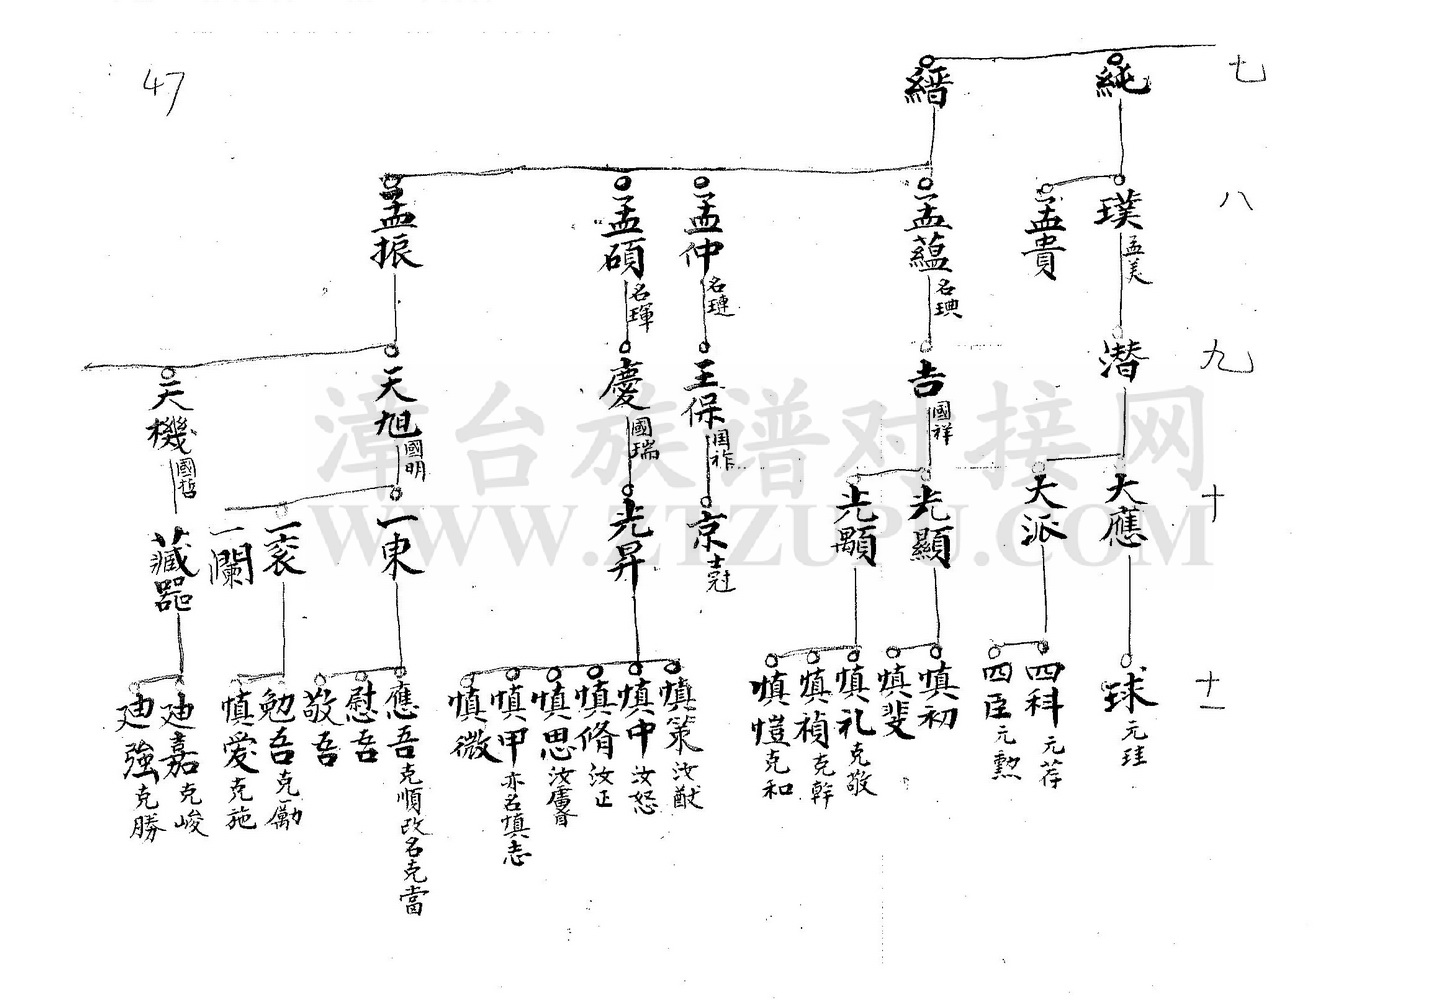 47
七
純
縉
八
璞 孟美
孟貴
孟蘊 名琠
孟仲 名璉
孟碩 名琿
孟振
九
潛
吉 國祥
王保 国祚
慶 國瑞
天旭 國明
天機 國哲
十
大應
天派
光顯
光顒
京 士冠
光昇
一東
一袞
一瀾
藏器
十一
球 元珪
四科 元荐
四臣 元勲
慎初
慎斐
慎礼 克敬
慎禎 克幹
慎愷 克和
慎策 汝猷
慎中 汝怒
慎脩 汝正
慎思
慎甲 亦名慎志
慎微
應吾 克順改名克當
慰吾
敬吾
勉吾 克勵
慎愛 克施
廸嘉 克峻
廸強 克勝
漳台族谱对接网
WWW.ZTZUPU.COM